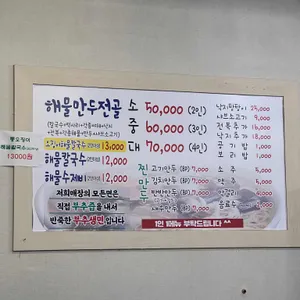 해물만두전골 소 50,000 (2인)
중 60,000 (3인)
대 70,000 (4인)
13,000
해물칼국수 12,000
해물수제비 12,000
저희매장의 모든면은
직접 부추즙을 내서
반죽한 부추생면입니다
찐만두
고기만두 (8P) 7,000
김치만두 (8P) 7,000
7,000
7,000
샤브소고기
전복추가 16,000
낙지추가 18,000
공기밥 1,000
보리밥
소주
맥주
막걸리
음료수
1인 1메뉴 부탁드립니다 ^^
13000원